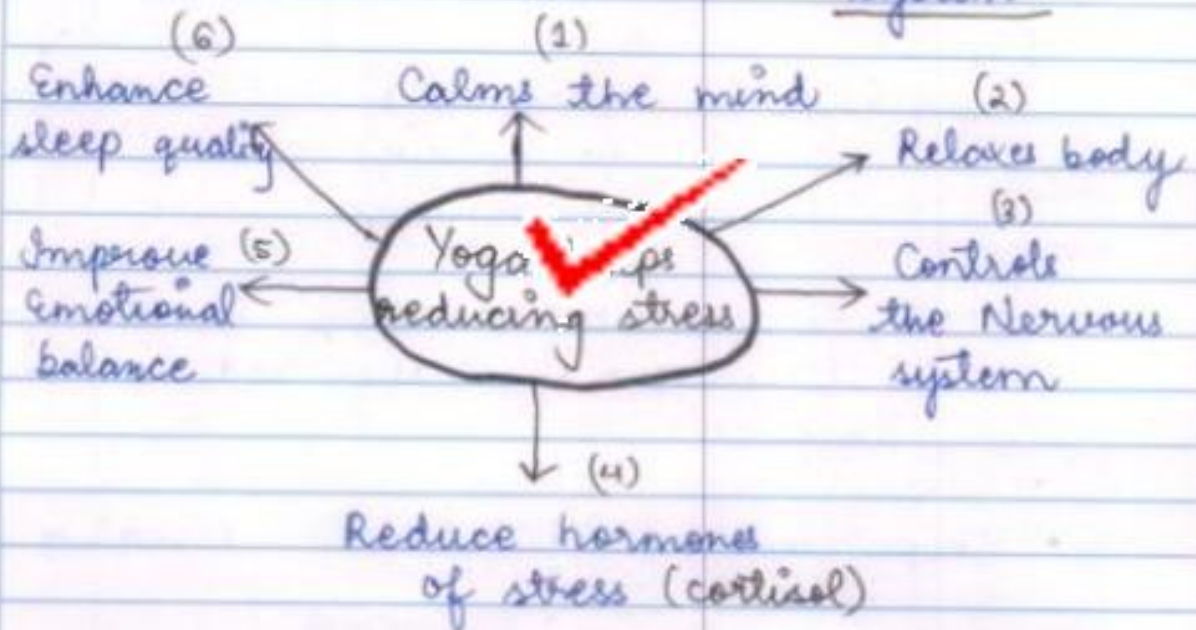 (6)
Enhance
sleep quality
(1)
Calms the mind
(2)
Relaxes body
(3)
Controls
the Nervous
system
Yoga
reducing stress
(5)
Improve
Emotional
balance
(4)
Reduce hormones
of stress (cortisol)